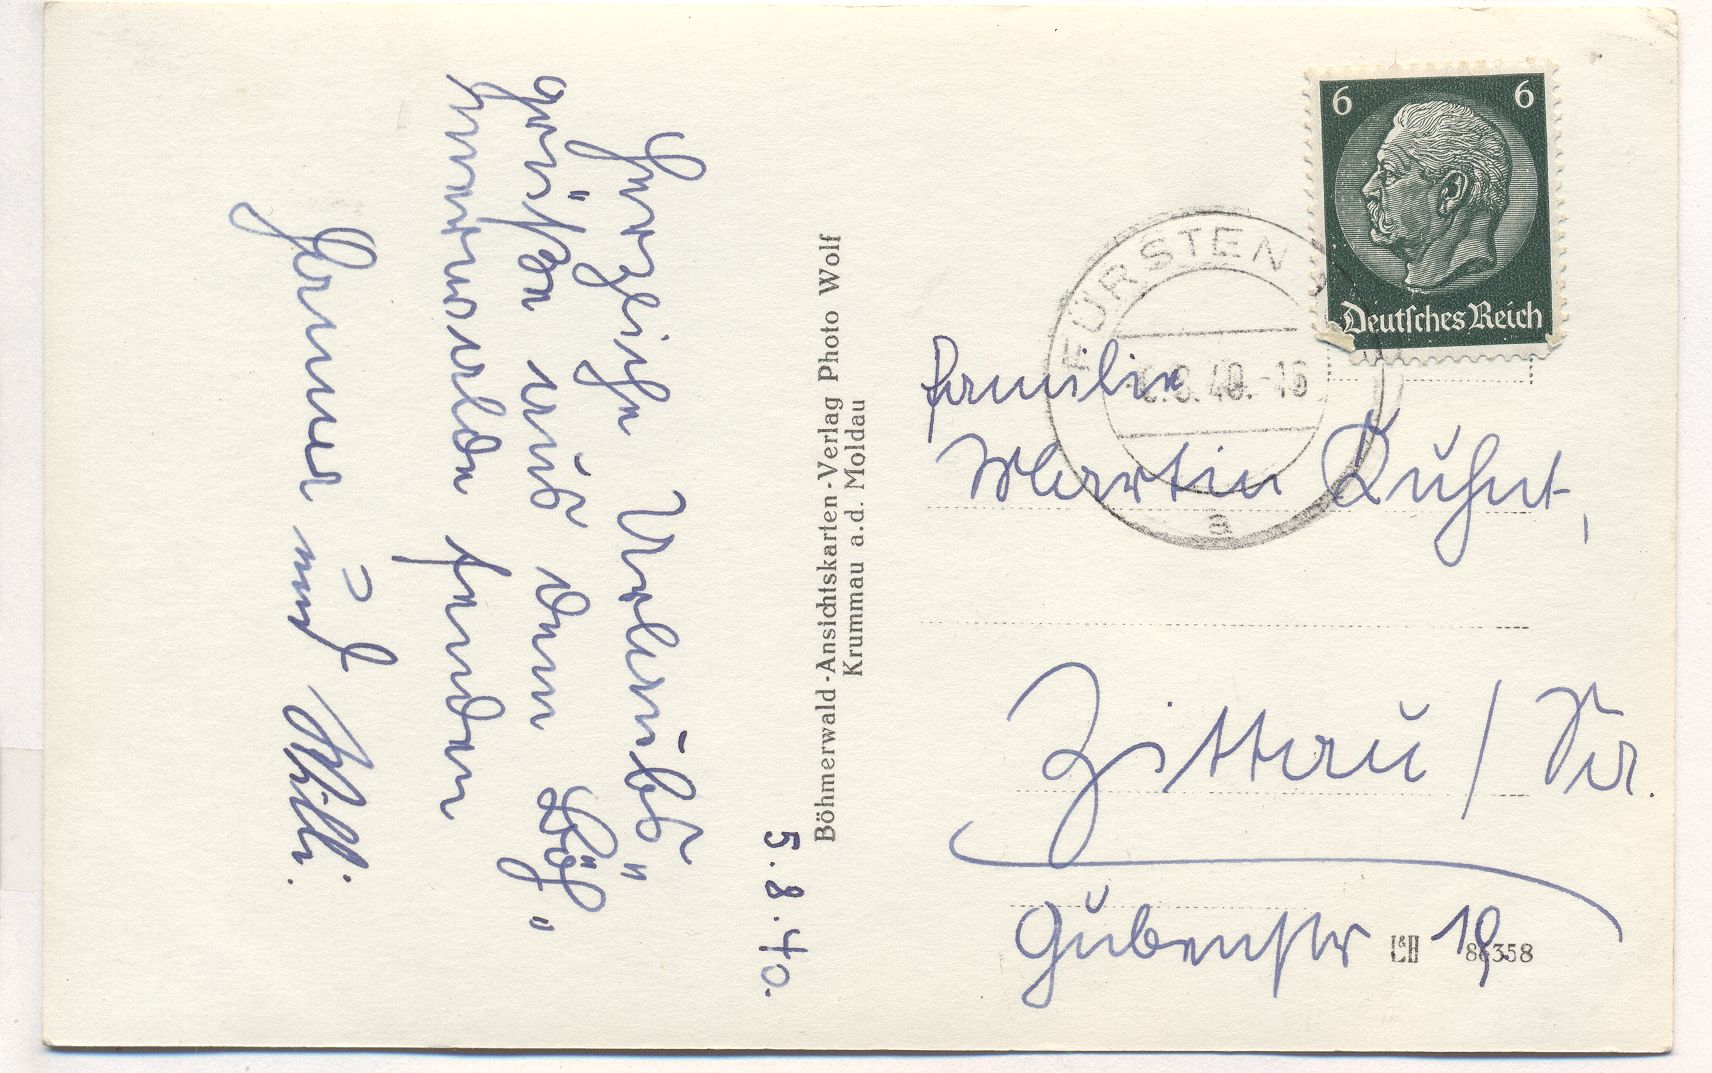 5.8.40.
Herzliche Urlaubs„
grüße aus dem Böh„
merwalde senden
und Willi.
Böhmerwald-Ansichtskarten-Verlag Photo Wolf
Krummau a.d. Moldau
6 6
Deutsches Reich
FÜRSTEN
40.-16
a
Familie
Martin Kuhnt,
Zittau / Sa.
Gubenstr 19